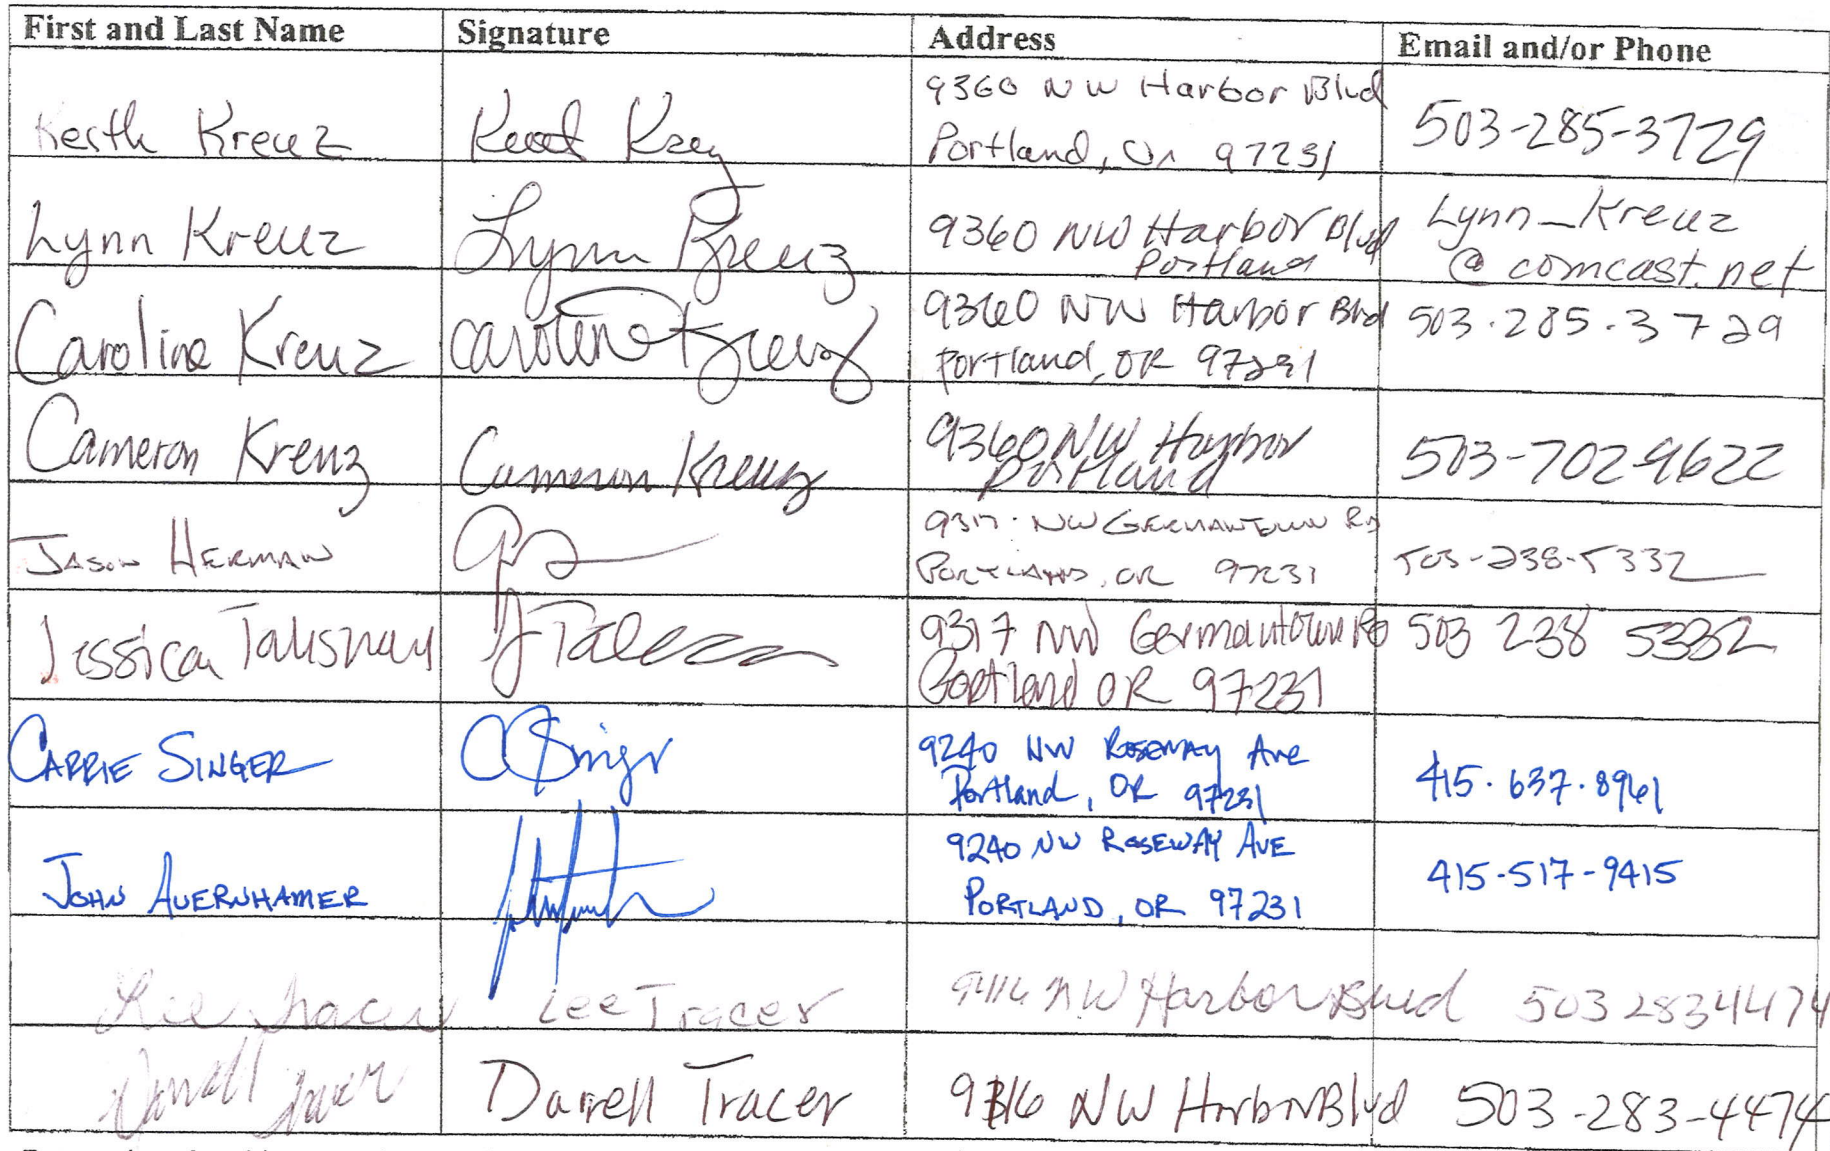 First and Last Name Signature Address Email and/or Phone
Keith Kreuz 9360 NW Harbor Blvd
Portland, Or 97231 503-285-3729
Lynn Kreuz Lynn Kreuz 9360 NW Harbor Blvd
Portland Lynn_Kreuz
@comcast.net
Caroline Kreuz Caroline Kreuz 9360 NW Harbor Blvd
Portland, OR 97231 503.285.3729
Cameron Kreuz Cameron Kreuz 9360 NW Harbor
Portland 503-702-9622
JASON HERMAN 9317 NW GERMANTOWN RD
PORTLAND, OR 97231 503-238-5332
Jessica 9317 NW Germantown RD
Portland OR 97231 503 238 5332
CARRIE SINGER C Singer 9240 NW ROSEWAY Ave
Portland, OR 97231 415.637.8961
JOHN AUERNHAMER 9240 NW ROSEWAY AVE
PORTLAND, OR 97231 415-517-9415
Lee Tracer Lee Tracer NW Harbor Blvd 503 283 4474
Darrell Tracer Darrell Tracer NW Harbor Blvd 503-283-4474